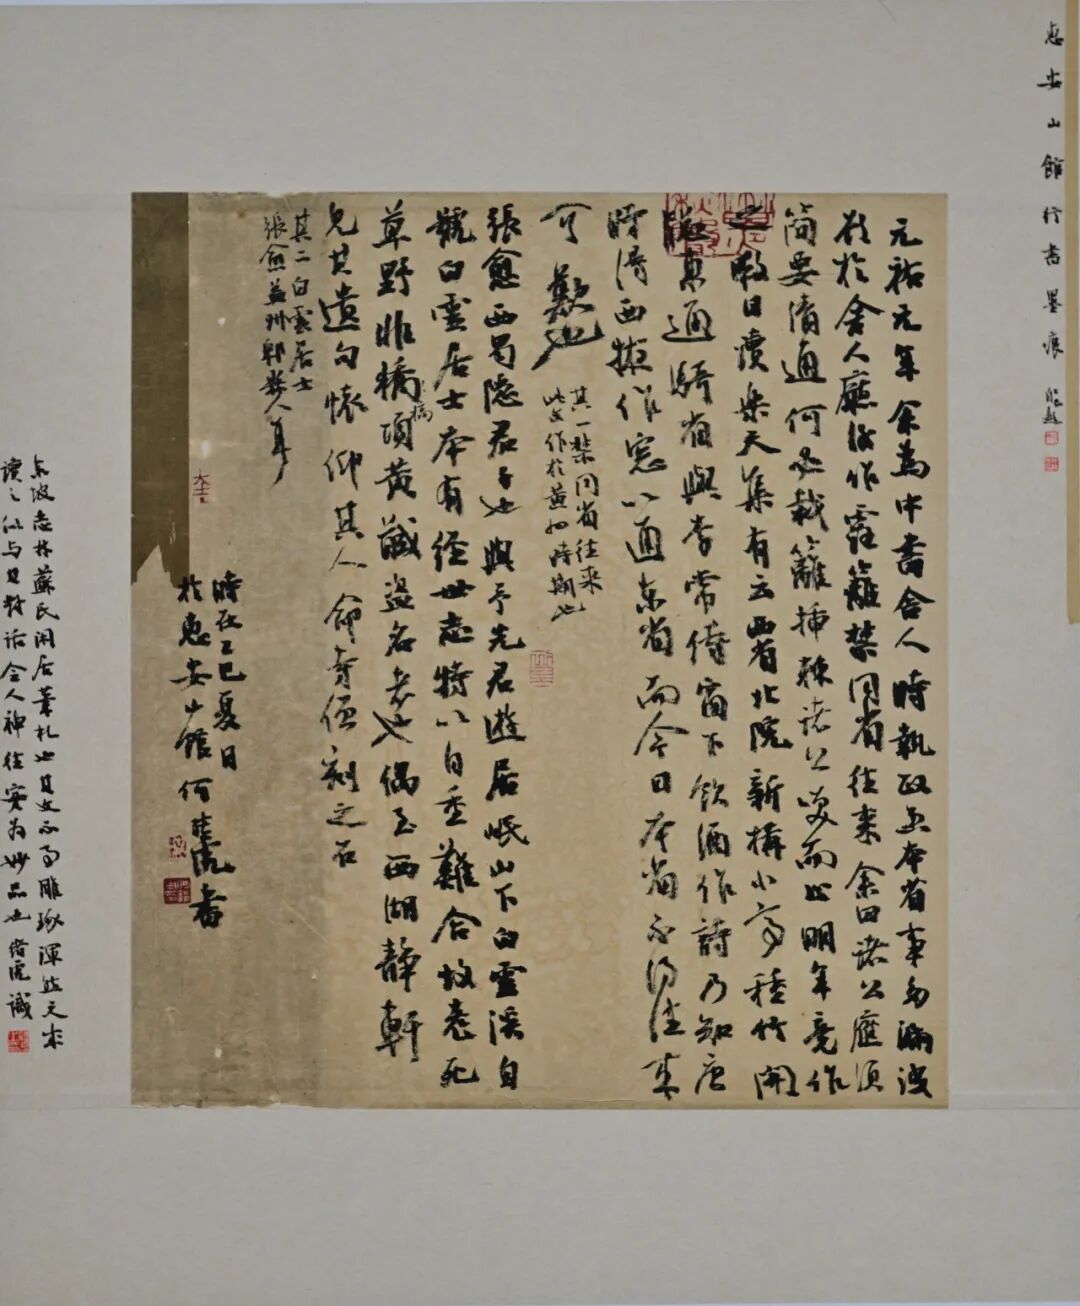 惠安山館行書墨痕
元祐元年余為中書舍人時執政患本省事多漏泄
欲於舍人廳後作露籬禁同省往來余曰諸公應須
簡要清通何必栽籬插棘諸公笑而止明年竟作
之暇日讀樂天集有云西省北院新構小亭種竹開
東通騎省與李常侍窗下飲酒作詩乃知唐
時得西掖作窗以通東省而今日本省不得往來
可歎也
其一禁同省往來
此文作於黃州時期也
張愈西蜀隱君子也與予先君遊居岷山下白雲溪自
號白雲居士本有經世志特以自重難合故老死
草野非槁項黃馘盜名者也偶至西湖靜軒
見其遺句懷仰其人命寺僧刻之石
其二白雲居士
張愈益州郫縣人耳
大吉
時在乙巳夏日
於惠安山館何 書
東坡志林蘇氏閑居筆札也其文不事雕琢渾然天成
讀之似與其對話令人神往實為妙品也 識